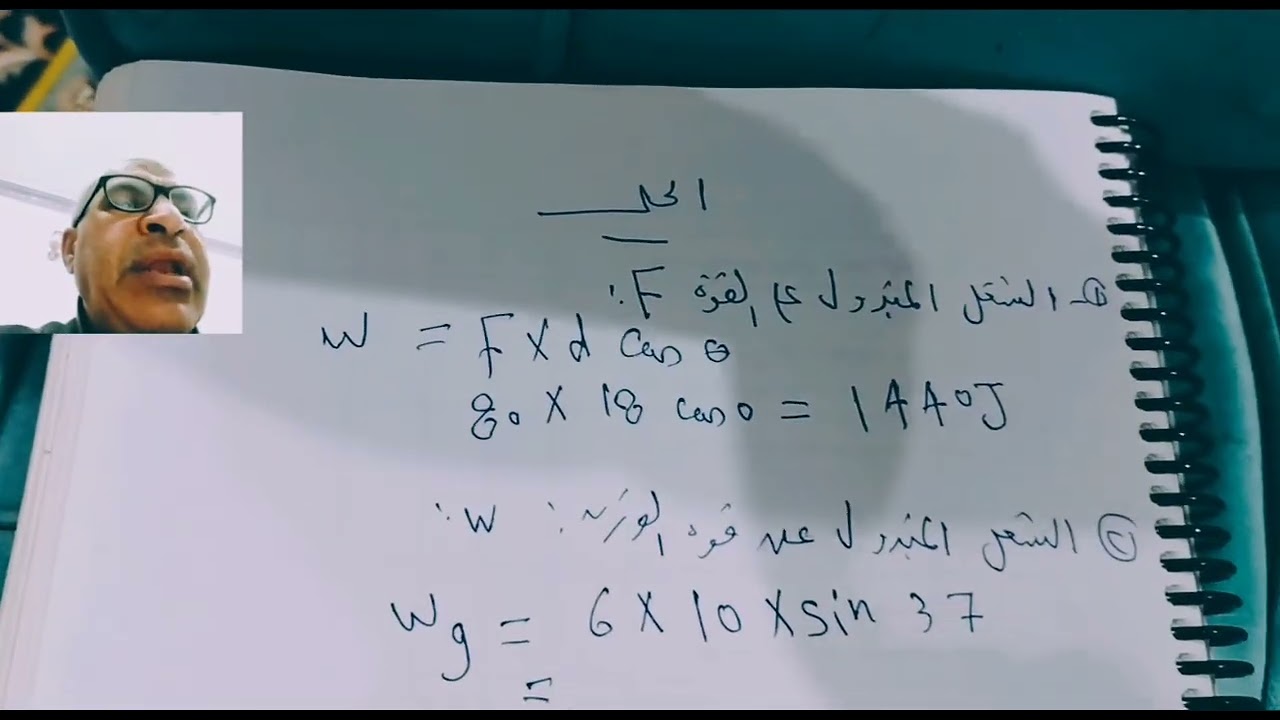 الحل
① - الشغل المبذول من القوة F:
W = F X d Cos θ
80 X 18 cos 0 = 1440J
② الشغل المبذول من قوة الوزن: W:
Wg = 6 X 10 X sin 37
=